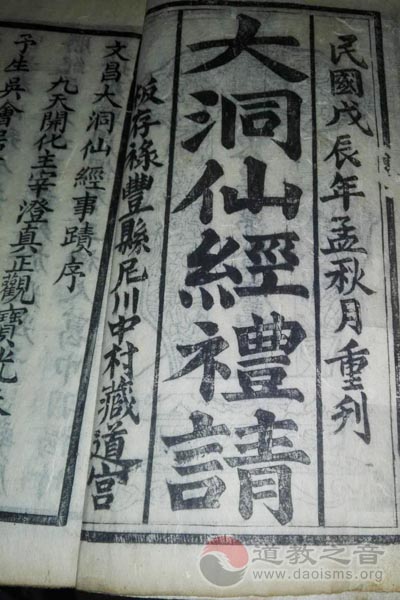 民國戊辰年孟秋月重刋
大洞仙經禮請
板存祿豐縣尼川中村藏道宮
文昌大洞仙經事蹟序
九天開化主宰澄真正觀寶光
予生吳會
道教之音
www.daoisms.org